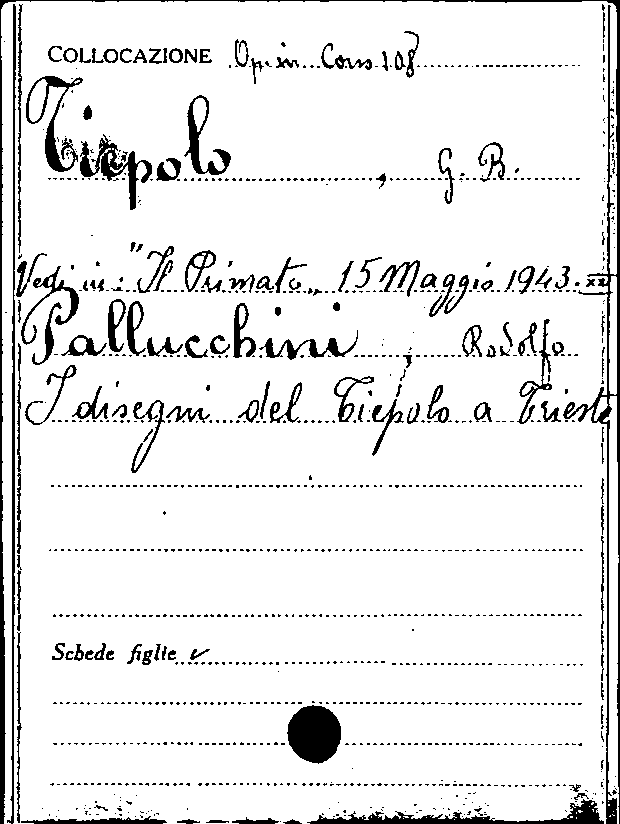 COLLOCAZIONE Op. in Corso 108
Tiepolo, G. B.
Vedi in: "Il Primato" 15 Maggio 1943. XXI
Pallucchini, Rodolfo
I disegni del Tiepolo a Trieste
Schede figlie ✓